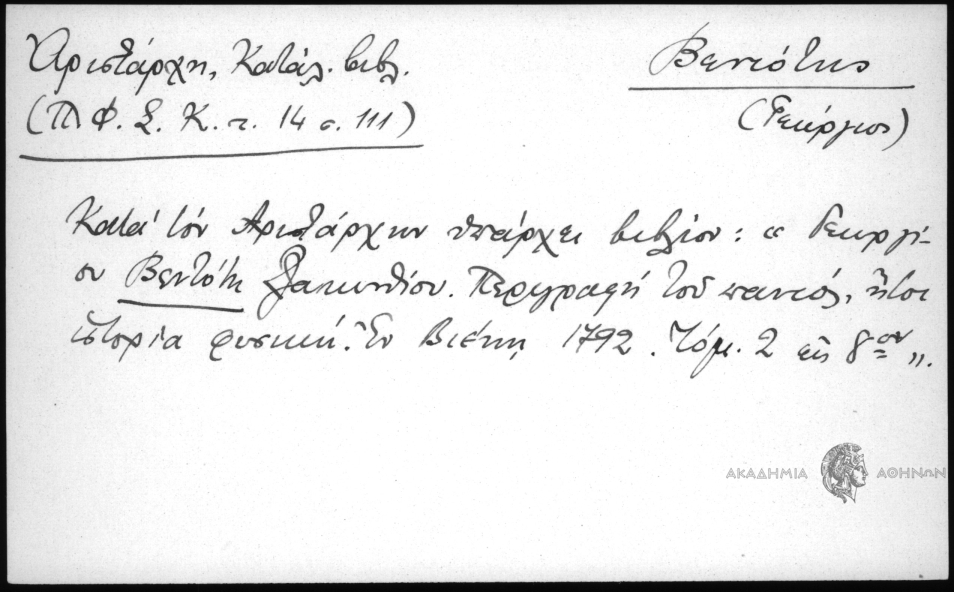 Ἀριστάρχη, Κατάλ. βιβλ.
(Π Φ. Σ. Κ. τ. 14 σ. 111)
Βεντότης
(Γεώργιος)
Κατά τόν Ἀριστάρχην ὑπάρχει βιβλίον: «Γεωργί-
ου Βεντότη Ζακυνθίου. Περιγραφή τοῦ παντός, ἤτοι
ἱστορία φυσική. Ἐν Βιέννῃ 1792. Τόμ. 2 εἰς 8ον».
ΑΚΑΔΗΜΙΑ ΑΘΗΝΩΝ